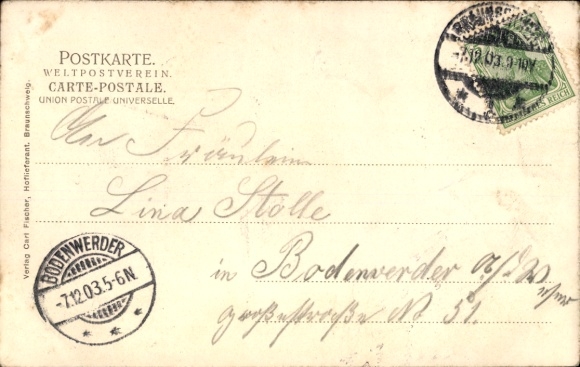 POSTKARTE.
WELTPOSTVEREIN.
CARTE-POSTALE.
UNION POSTALE UNIVERSELLE.
Verlag Carl Fischer, Hoflieferant. Braunschweig.
BRAUNSCHWEIG
-7.12.03.9-10V
REICH
An Fräulein
Lina Stolle
in Bodenwerder a/d Weser
großestraße No 51.
BODENWERDER
-7.12.03.5-6N.